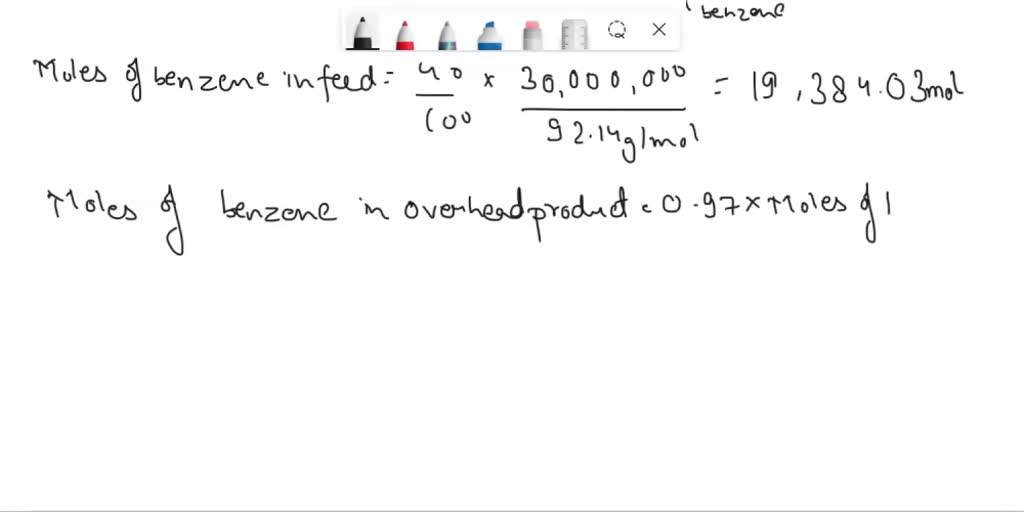 benzene
Moles of benzene in feed = 40/100 × 30,000,000/92.14g/mol = 19,384.03mol
Moles of benzene in overhead product = 0.97 × Moles of